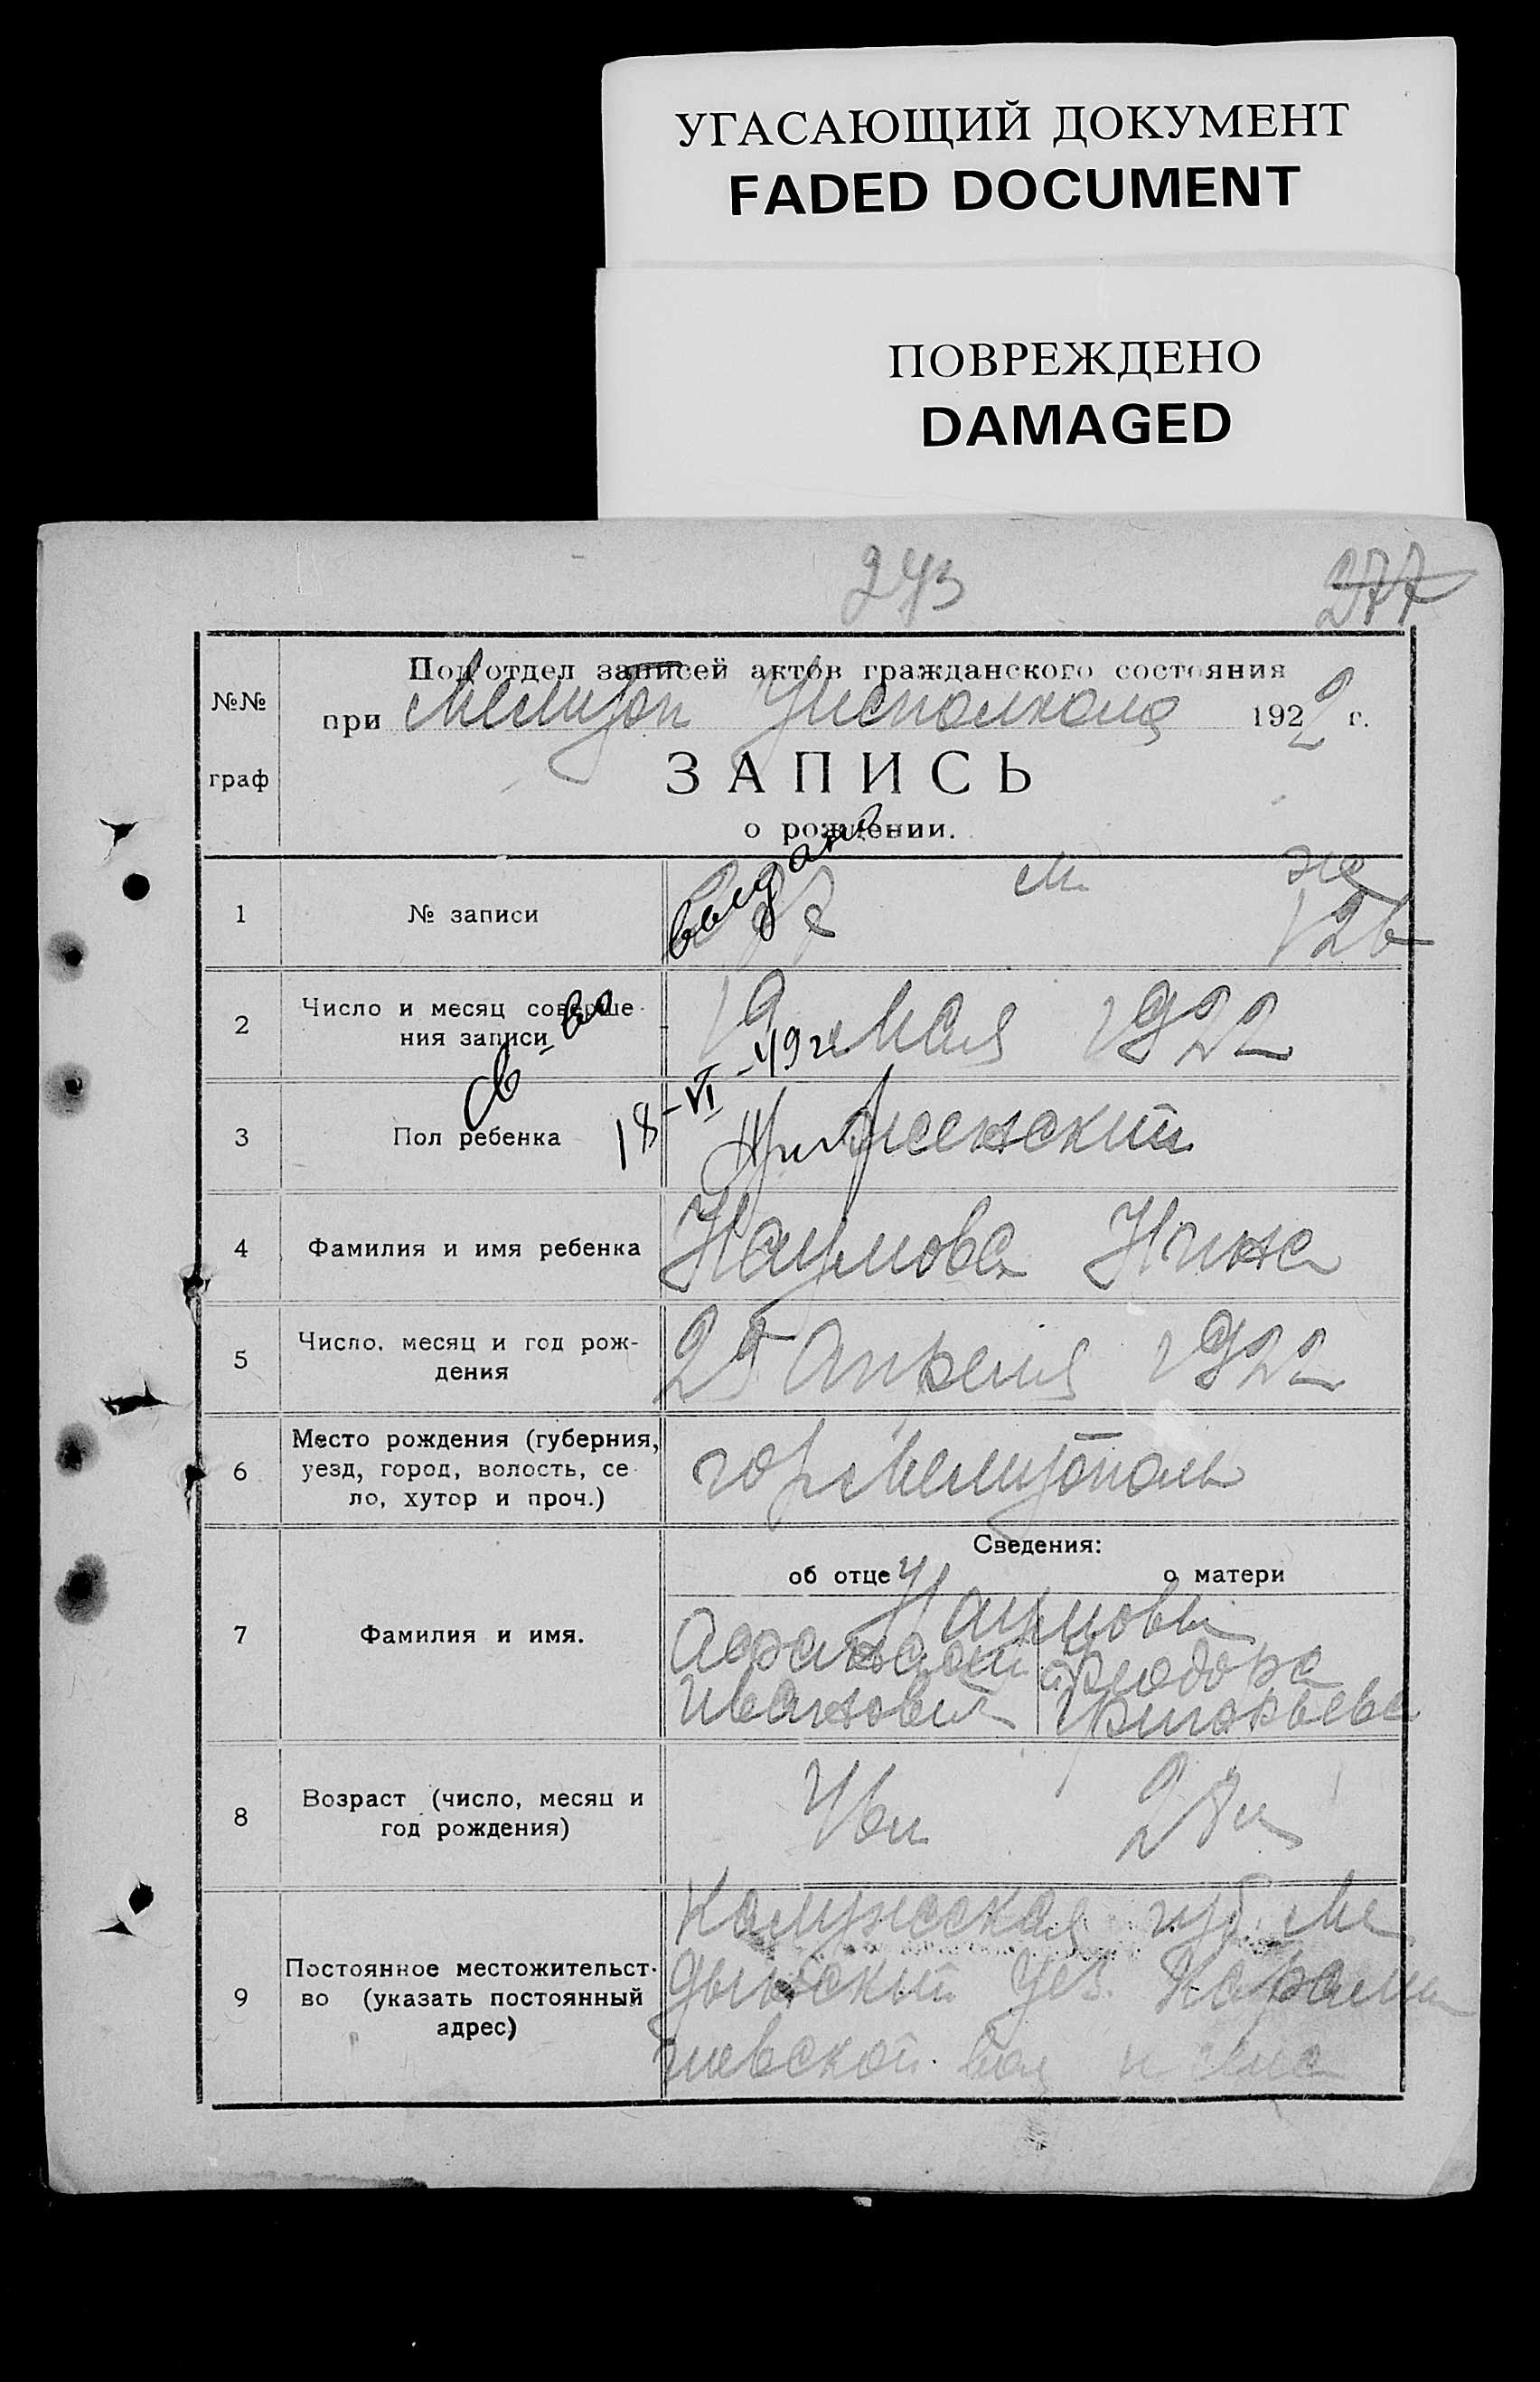 УГАСАЮЩИЙ ДОКУМЕНТ
FADED DOCUMENT
ПОВРЕЖДЕНО
DAMAGED
243
277
№№
граф
Подотдел записей актов гражданского состояния
при Мелитоп Уисполкома 1922 г.
ЗАПИСЬ
о рождении.
1
№ записи
м
же
126
2
Число и месяц соверше-
ния записи
19 Мая 1922
Св-во выдано
18-VI-49 г.
3
Пол ребенка
женский
4
Фамилия и имя ребенка
Наумова Нина
5
Число, месяц и год рож-
дения
25 Апреля 1922
6
Место рождения (губерния,
уезд, город, волость, се-
ло, хутор и проч.)
гор Мелитополь
Сведения:
об отце
о матери
7
Фамилия и имя.
Наумовы
Афанасий
Иванович
Феодора
Григорьева
8
Возраст (число, месяц и
год рождения)
9
Постоянное местожительст-
во (указать постоянный
адрес)
Калужская губ. Ме
дынский уез.